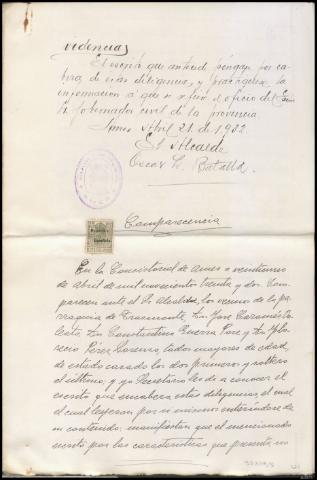 videncias
El escrito que antecede póngase por ca-
beza de estas diligencias, y practíquese la
información a que se refiere el oficio del Excmo
Sr Gobernador civil de la provincia
Ames Abril 21 de 1932.
El Alcalde
Oscar L. Batalla.
Comparecencia
En la Consistorial de Ames a veintiuno
de abril de mil novecientos treinta y dos. Com-
parecen ante el Sr Alcalde, los vecinos de la pa-
rroquia de Trasmonte, Don José Caramés
Don Constantino Pose y Don
Pérez Lorenzo, todos mayores de edad,
de estado casado los dos primeros y soltero
el último, y yo Secretario les di a conocer el
escrito que encabeza estas diligencias, el cual
el cual leyeron por si mismos enterándose de
su contenido: manifestan que el mencionado
escrito por las características que presenta, no